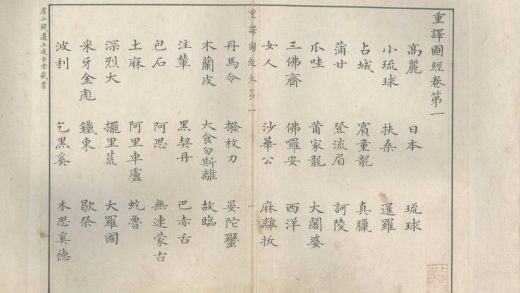 重譯圖經卷第一
高麗 日本 琉球
小琉球 扶桑 暹羅
占城 賓童龍 真臘
蒲甘 登流眉 訶陵
瓜哇 莆家龍 大闍婆
三佛齊 佛羅安 西洋
女人 沙華公 麻離拔
重譯圖經卷第一 一
丹馬令 撥枚力 晏陀蠻
木蘭皮 大食勿斯離 故臨
注輦 黑契丹 巴赤舌
包石 阿思 無連蒙古
土麻 阿里車盧 蛇魯
深烈大 擺里荒 大羅國
采牙金彪 鐵東 歇祭
波利 乞黑奚 木思奚德
虞山錢遵王述古堂藏書